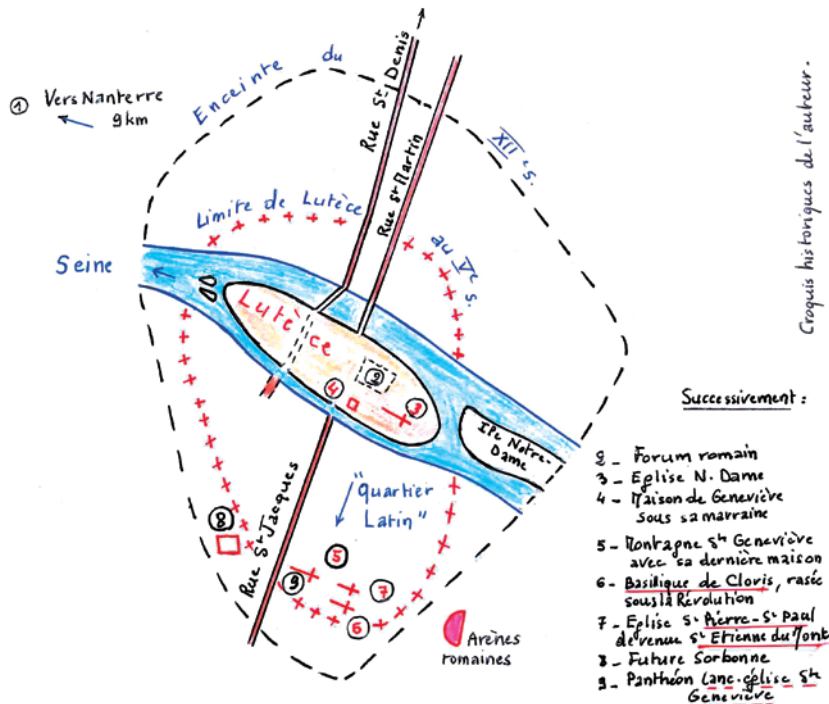 ① Vers Nanterre
9 km
Enceinte du XII e s.
Rue St Denis
Rue St Martin
Limite de Lutèce
au Ve s.
Seine
Lutèce
②
④
③
Ile Notre-
Dame
"Quartier
Latin"
Rue St Jacques
⑧
⑤
⑨
⑦
⑥
Arènes
romaines
Croquis historiques de l'auteur.
Successivement :
2 - Forum romain
3 - Eglise N. Dame
4 - Maison de Geneviève
sous sa marraine
5 - Montagne Ste Geneviève
avec sa dernière maison
6 - Basilique de Clovis, rasée
sous la Révolution
7 - Eglise St Pierre-St Paul
devenue St Etienne du Mont
8 - Future Sorbonne
9 - Panthéon (anc. église Ste
Geneviève